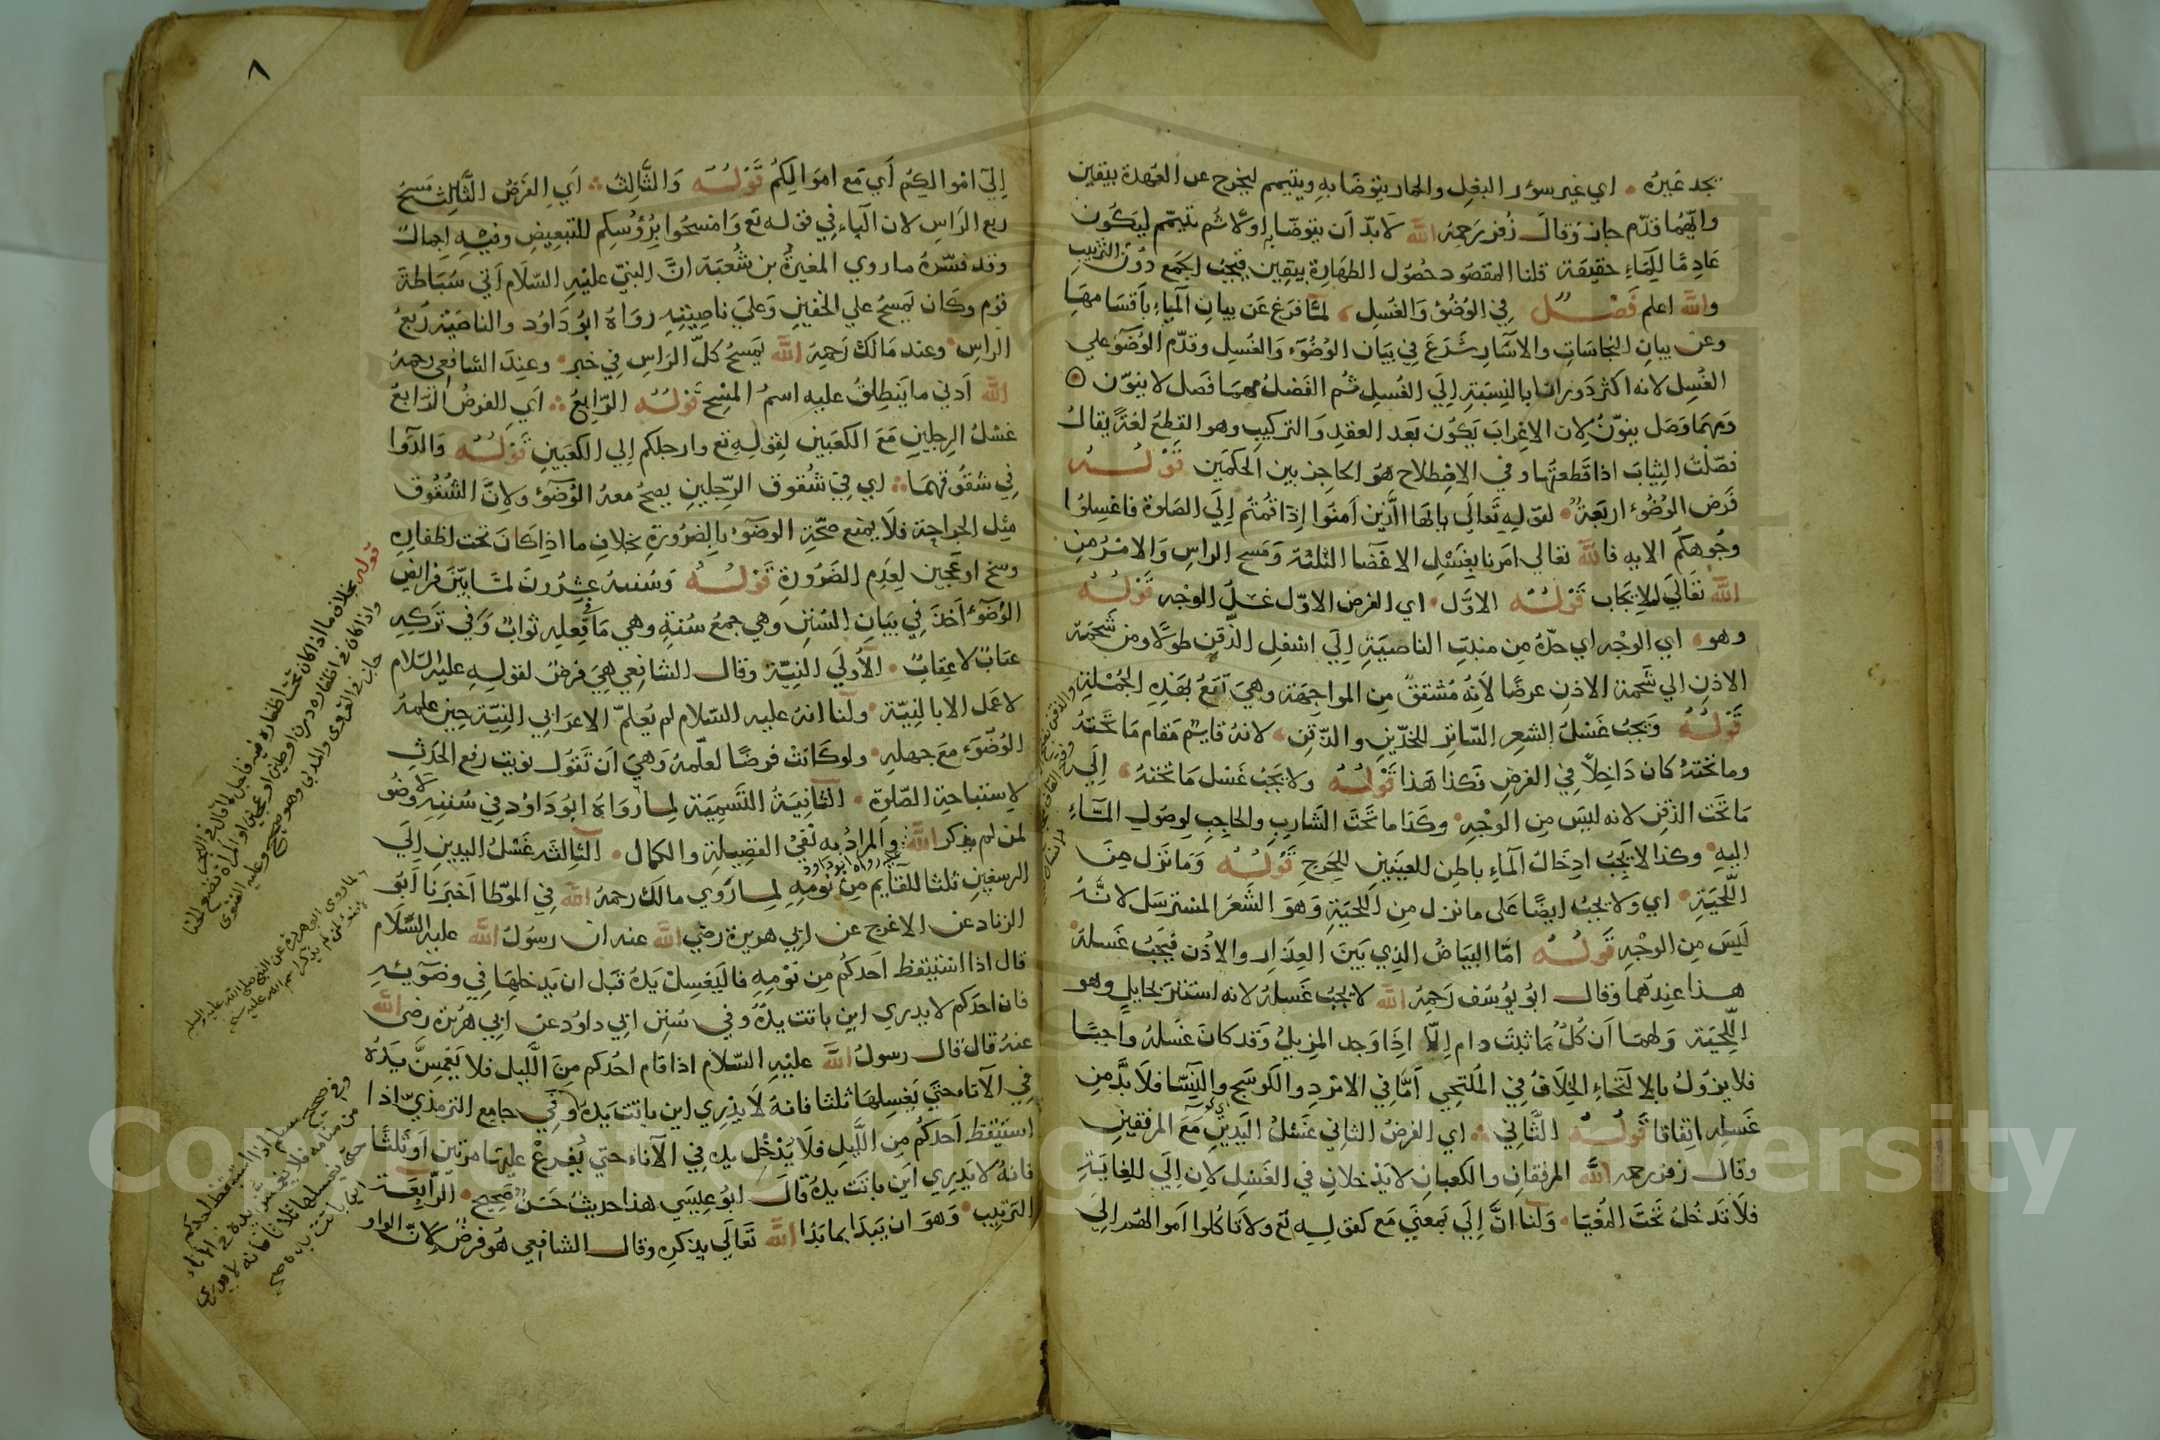 يجد غيره ۰ اي غير سؤر البغل والحمار يتوضا به ويتيمم ليخرج عن العهدة بيقين
وايهما قدم جاز وقال زفر رحمه الله لا بد ان يتوضا به اولا ثم تيمم ليكون
عادما للماء حقيقة قلنا المقصود حصول الطهارة بيقين فيجب الجمع دون الترتيب
والله اعلم فصل في الوضوء والغسل لما فرغ عن بيان المياه باقسامها
وعن بيان النجاسات والاسآر شرع في بيان الوضوء والغسل وقدم الوضوء علي
الغسل لانه اكثر دورانا بالنسبة الي الغسل ثم الفصل مهما فصل لا ينون
ومهما وصل ينون لان الاعراب يكون بعد العقد والتركيب وهو القطع لغة يقال
فصلت الثياب اذا قطعتها وفي الاصطلاح هو الحاجز بين الحكمين قوله
فرض الوضوء اربعة لقوله تعالي يايها الذين امنوا اذا قمتم الي الصلوة فاغسلوا
وجوهكم الايه فالله تعالي امرنا بغسل الاعضا الثلثة ومسح الراس والامر من
الله تعالي للايجاب قوله الاول ۰ اي الفرض الاول غسل الوجه قوله
وهو اي الوجه اي حده من منبت الناصية الي اسفل الذقن طولا ومن شحمة
الاذن الي شحمة الاذن عرضا لانه مشتق من المواجهة وهي تقع بهذه الجملة
قوله ويجب غسل الشعر الساتر للخدين والذقن لانه قايم مقام ما تحته
وما تحته كان داخلا في الفرض فكذا هذا قوله ولا يجب غسل ما تحته اي
ما تحت الذقن لانه ليس من الوجه وكذا ما تحت الشارب والحاجب لوصول الماء
اليه وكذا لا يجب ادخال الماء باطن العينين للحرج قوله وما نزل من
اللحية اي ولا يجب ايضا على ما نزل من اللحية وهو الشعر المسترسل لانه
ليس من الوجه قوله اما البياض الذي بين العذار والاذن فيجب غسله
هذا عندهما وقال ابو يوسف رحمه الله لا يجب غسله لانه استتر بحايل وهو
اللحية ولهما ان كل ما ثبت دام الا اذا وجد المزيل وقد كان غسله واجبا
فلا يزول بالالتحاء الخلاف في الملتحي اما في الامرد والكوسج والنسا فلا بد من
غسله اتفاقا قوله الثاني اي الفرض الثاني غسل اليدين مع المرفقين
وقال زفر رحمه الله المرفقان والكعبان لا يدخلان في الغسل لان الي للغاية
فلا تدخل تحت المغيا ولنا ان الي بمعني مع كقوله تع ولا تاكلوا اموالهم الي
والذقن
٨
الي اموالكم أي مع اموالكم قوله والثالث اي الفرض الثالث مسح
ربع الراس لان الباء في قوله تع وامسحوا برؤسكم للتبعيض وفيه اجمال
وقد فسره ما روي المغيرة بن شعبة ان النبي عليه السلام اتي سباطة
قوم وكان يمسح علي الخفين وعلي ناصيته رواه ابو داود والناصية ربع
الراس وعند مالك رحمه الله يمسح كل الراس في خبر وعند الشافعي رحمه
الله ادني ما ينطلق عليه اسم المسح قوله الرابع اي الفرض الرابع
غسل الرجلين مع الكعبين لقوله تع وارجلكم الي الكعبين قوله والدوا
في شقوقهما اي في شقوق الرجلين يصح معه الوضوء ولان الشقوق
مثل الجراحة فلا يمنع صحة الوضوء بالضرورة بخلاف ما اذا كان تحت اظفاره
وسخ او عجين لعدم الضرورة قوله وسننه عشرون لما بين فرايض
الوضوء اخذ في بيان السنن وهي جمع سنة وهي ما في فعله ثواب وفي تركه
عتاب لا عقاب الاولي النية وقال الشافعي هي فرض لقوله عليه السلام
لا عمل الا بالنية ولنا انه عليه السلام لم يعلم الاعرابي النية حين علمه
الوضوء مع جهله ولو كانت فرضا لعلمه وهي ان تقول نويت رفع الحدث
لاستباحة الصلوة الثانية التسمية لما رواه ابو داود في سننه لا وضو
لمن لم يذكر الله والمراد به نفي الفضيلة والكمال الثالثه غسل اليدين الي
رواه ابو داود
الرسغين ثلثا للقايم من نومه لما روي مالك رحمه الله في الموطا اخبرنا ابو
الزناد عن الاعرج عن ابي هريرة رضي الله عنه ان رسول الله عليه السلام
قال اذا استيقظ احدكم من نومه فاليغسل يده قبل ان يدخلها في وضوئه
فان احدكم لا يدري اين باتت يده وفي سنن ابي داود عن ابي هريرة رضي الله
عنه قال قال رسول الله عليه السلام اذا قام احدكم من الليل فلا يغمس يده
في الاناء حتي يغسلها ثلثا فانه لا يدري اين باتت يده وفي جامع الترمذي اذا
استيقظ احدكم من الليل فلا يدخل يده في الاناء حتي يفرغ عليها مرتين او ثلثا
فانه لا يدري اين باتت يده قال ابو عيسي هذا حديث حسن صحيح الرابعة
الترتيب وهو ان يبدا بما بدا الله تعالي بذكره وقال الشافعي هو فرض لان الواو
قوله بخلاف ما اذا كان تحت اظفاره
واذا كان في اظفاره درن او طين او عجين او المراة تضع الحنا
جاز في القروي والمدني وهو صحيح وعليه الفتوى
لما روى ابو هريرة عن النبي صلى الله عليه وسلم
لم يذكر اسم الله عليه
وفي صحيح مسلم اذا استيقظ احدكم
من منامه فلا يغمس يده في الاناء
حتى يغسلها ثلاثا فانه لا يدري
اين باتت يده
Copyright © King Saud University